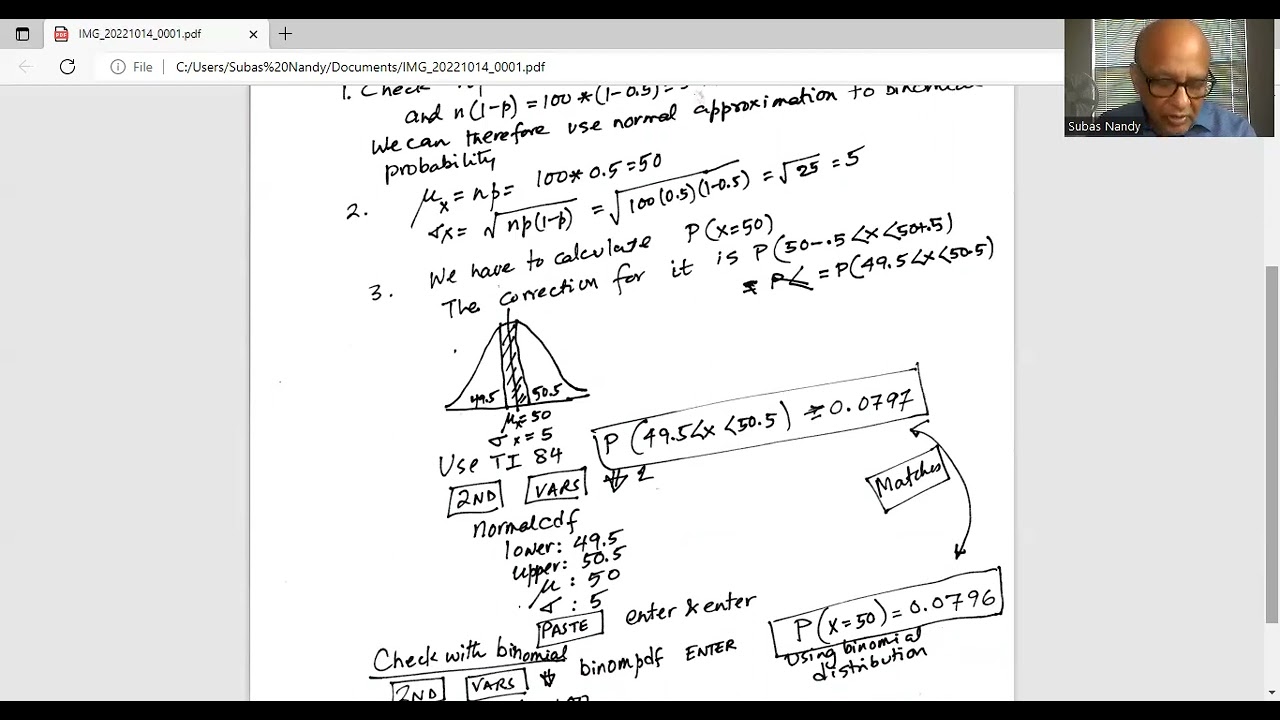 IMG_20221014_0001.pdf
File C:/Users/Subas%20Nandy/Documents/IMG_20221014_0001.pdf
Subas Nandy
1. Check
and n(1-p) = 100*(1-0.5)=
We can therefore use normal approximation to binomial
probability
2. μx = np = 100*0.5=50
σx = √np(1-p) = √100(0.5)(1-0.5) = √25 = 5
3. We have to calculate P(x=50)
The correction for it is P(50-.5<x<50+.5)
= P< = P(49.5<x<50.5)
49.5 50.5
μx=50
σx=5
P(49.5<x<50.5) = 0.0797
Use TI 84
2ND VARS ⇓ 2
Matches
normalcdf
lower: 49.5
upper: 50.5
μ : 50
σ : 5
PASTE enter & enter
P(x=50)=0.0796
Using binomial
distribution
Check with binomial
2ND VARS ⇓ binompdf ENTER